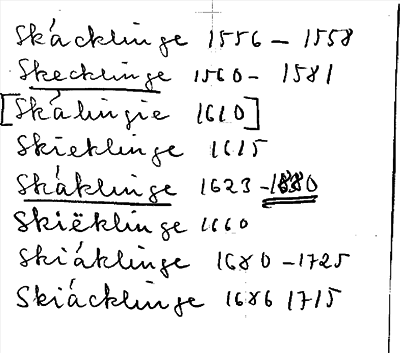 Skácklinge 1556 – 1558
Skecklinge 1560 – 1581
[Skálingie 1610]
Skieklinge 1615
Skáklinge 1623 – 1880
Skiëklinge 1660
Skiáklinge 1680 – 1725
Skiácklinge 1686 1715